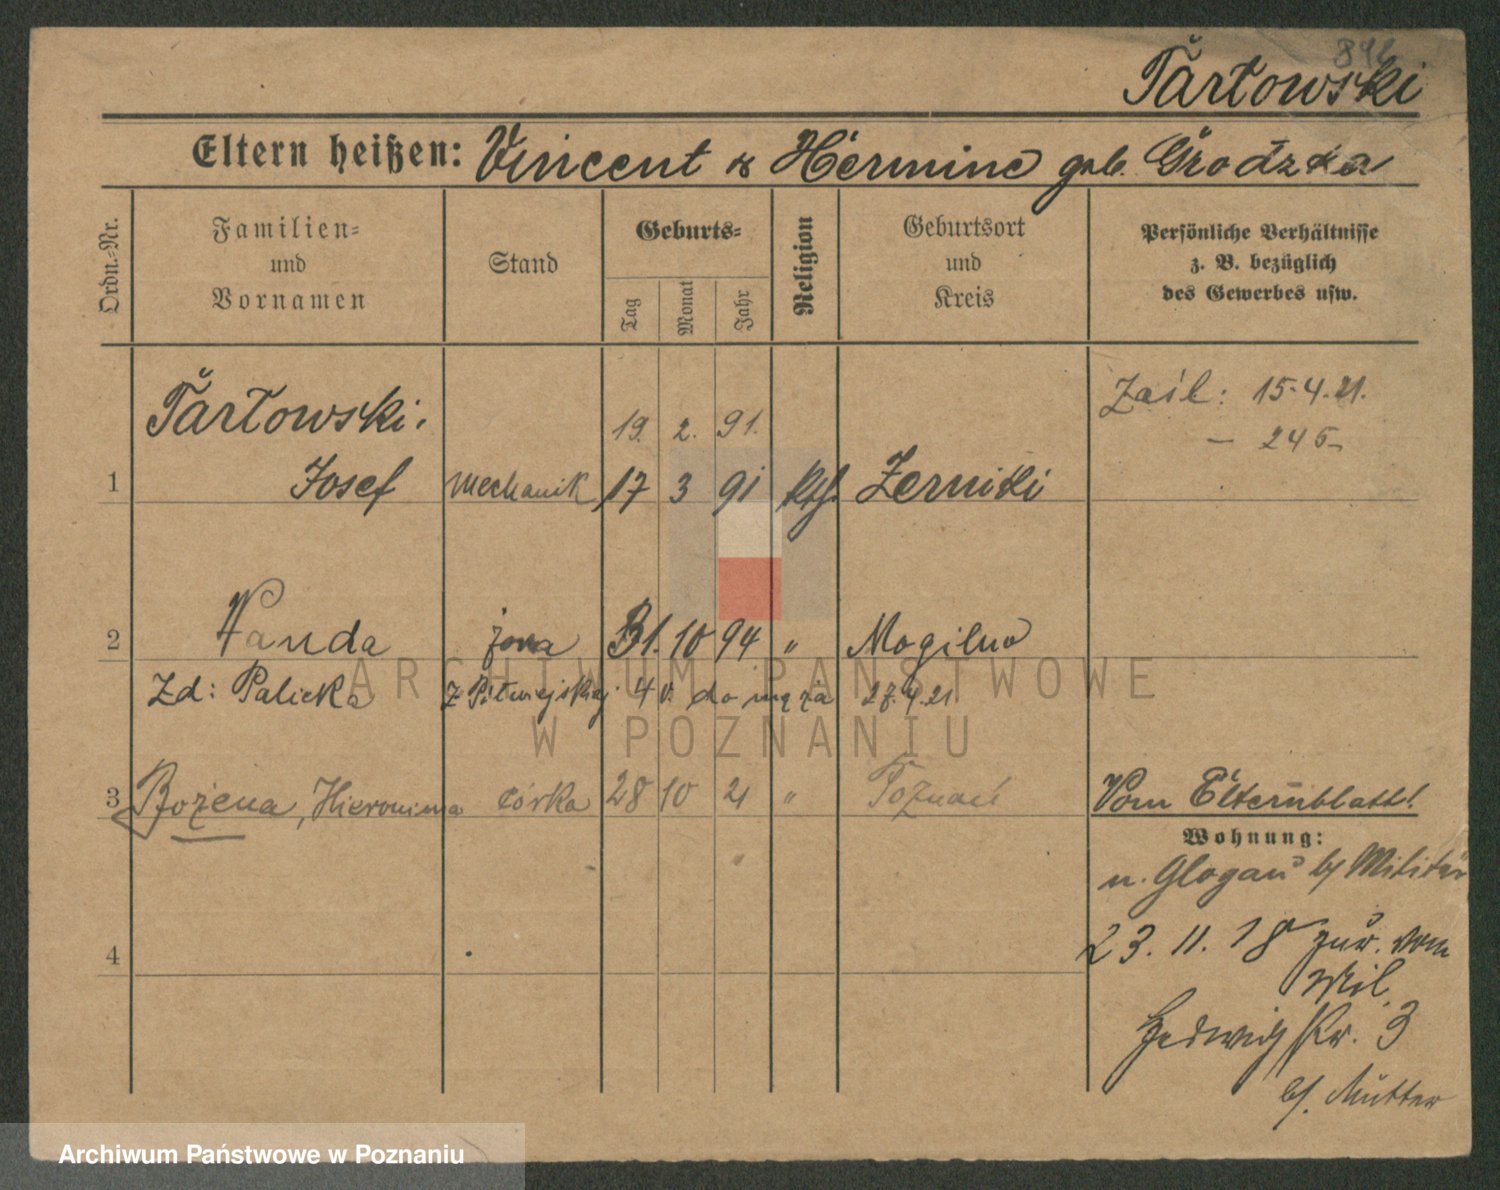 896
Tartowski
Eltern heißen: Vincent & Hermine geb. Grodzka
Ordn.-Nr.
Familien- und Vornamen
Stand
Geburts-
Tag
Monat
Jahr
Religion
Geburtsort und Kreis
Persönliche Verhältnisse z. B. bezüglich des Gewerbes usw.
Zail: 15.4.21.
— 245
Tartowski.
19. 2. 91.
1 Josef mechanik 17 3 91 kth. Zerniki
2 Wanda żona 31. 10 94 " Mogilno
Zd: Palicka z 4 v. do męża 27.4.21
3 Bożena, Hieronima córka 28 10 21 " Poznań
Vom Elternblatt!
Wohnung:
n. Glogau bf Militär
4
23. 11. 18 zur. vom
Mil.
Hedwigstr. 3
bf. Mutter
ARCHIWUM PAŃSTWOWE
W POZNANIU
Archiwum Państwowe w Poznaniu